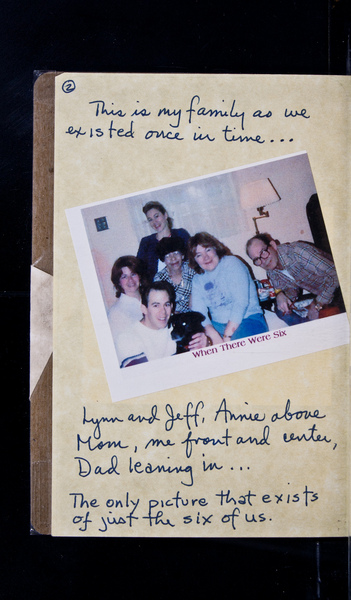 2
This is my family as we
existed once in time...
When There Were Six
Lynn and Jeff, Annie above
Mom, me front and center,
Dad leaning in...
The only picture that exists
of just the six of us.